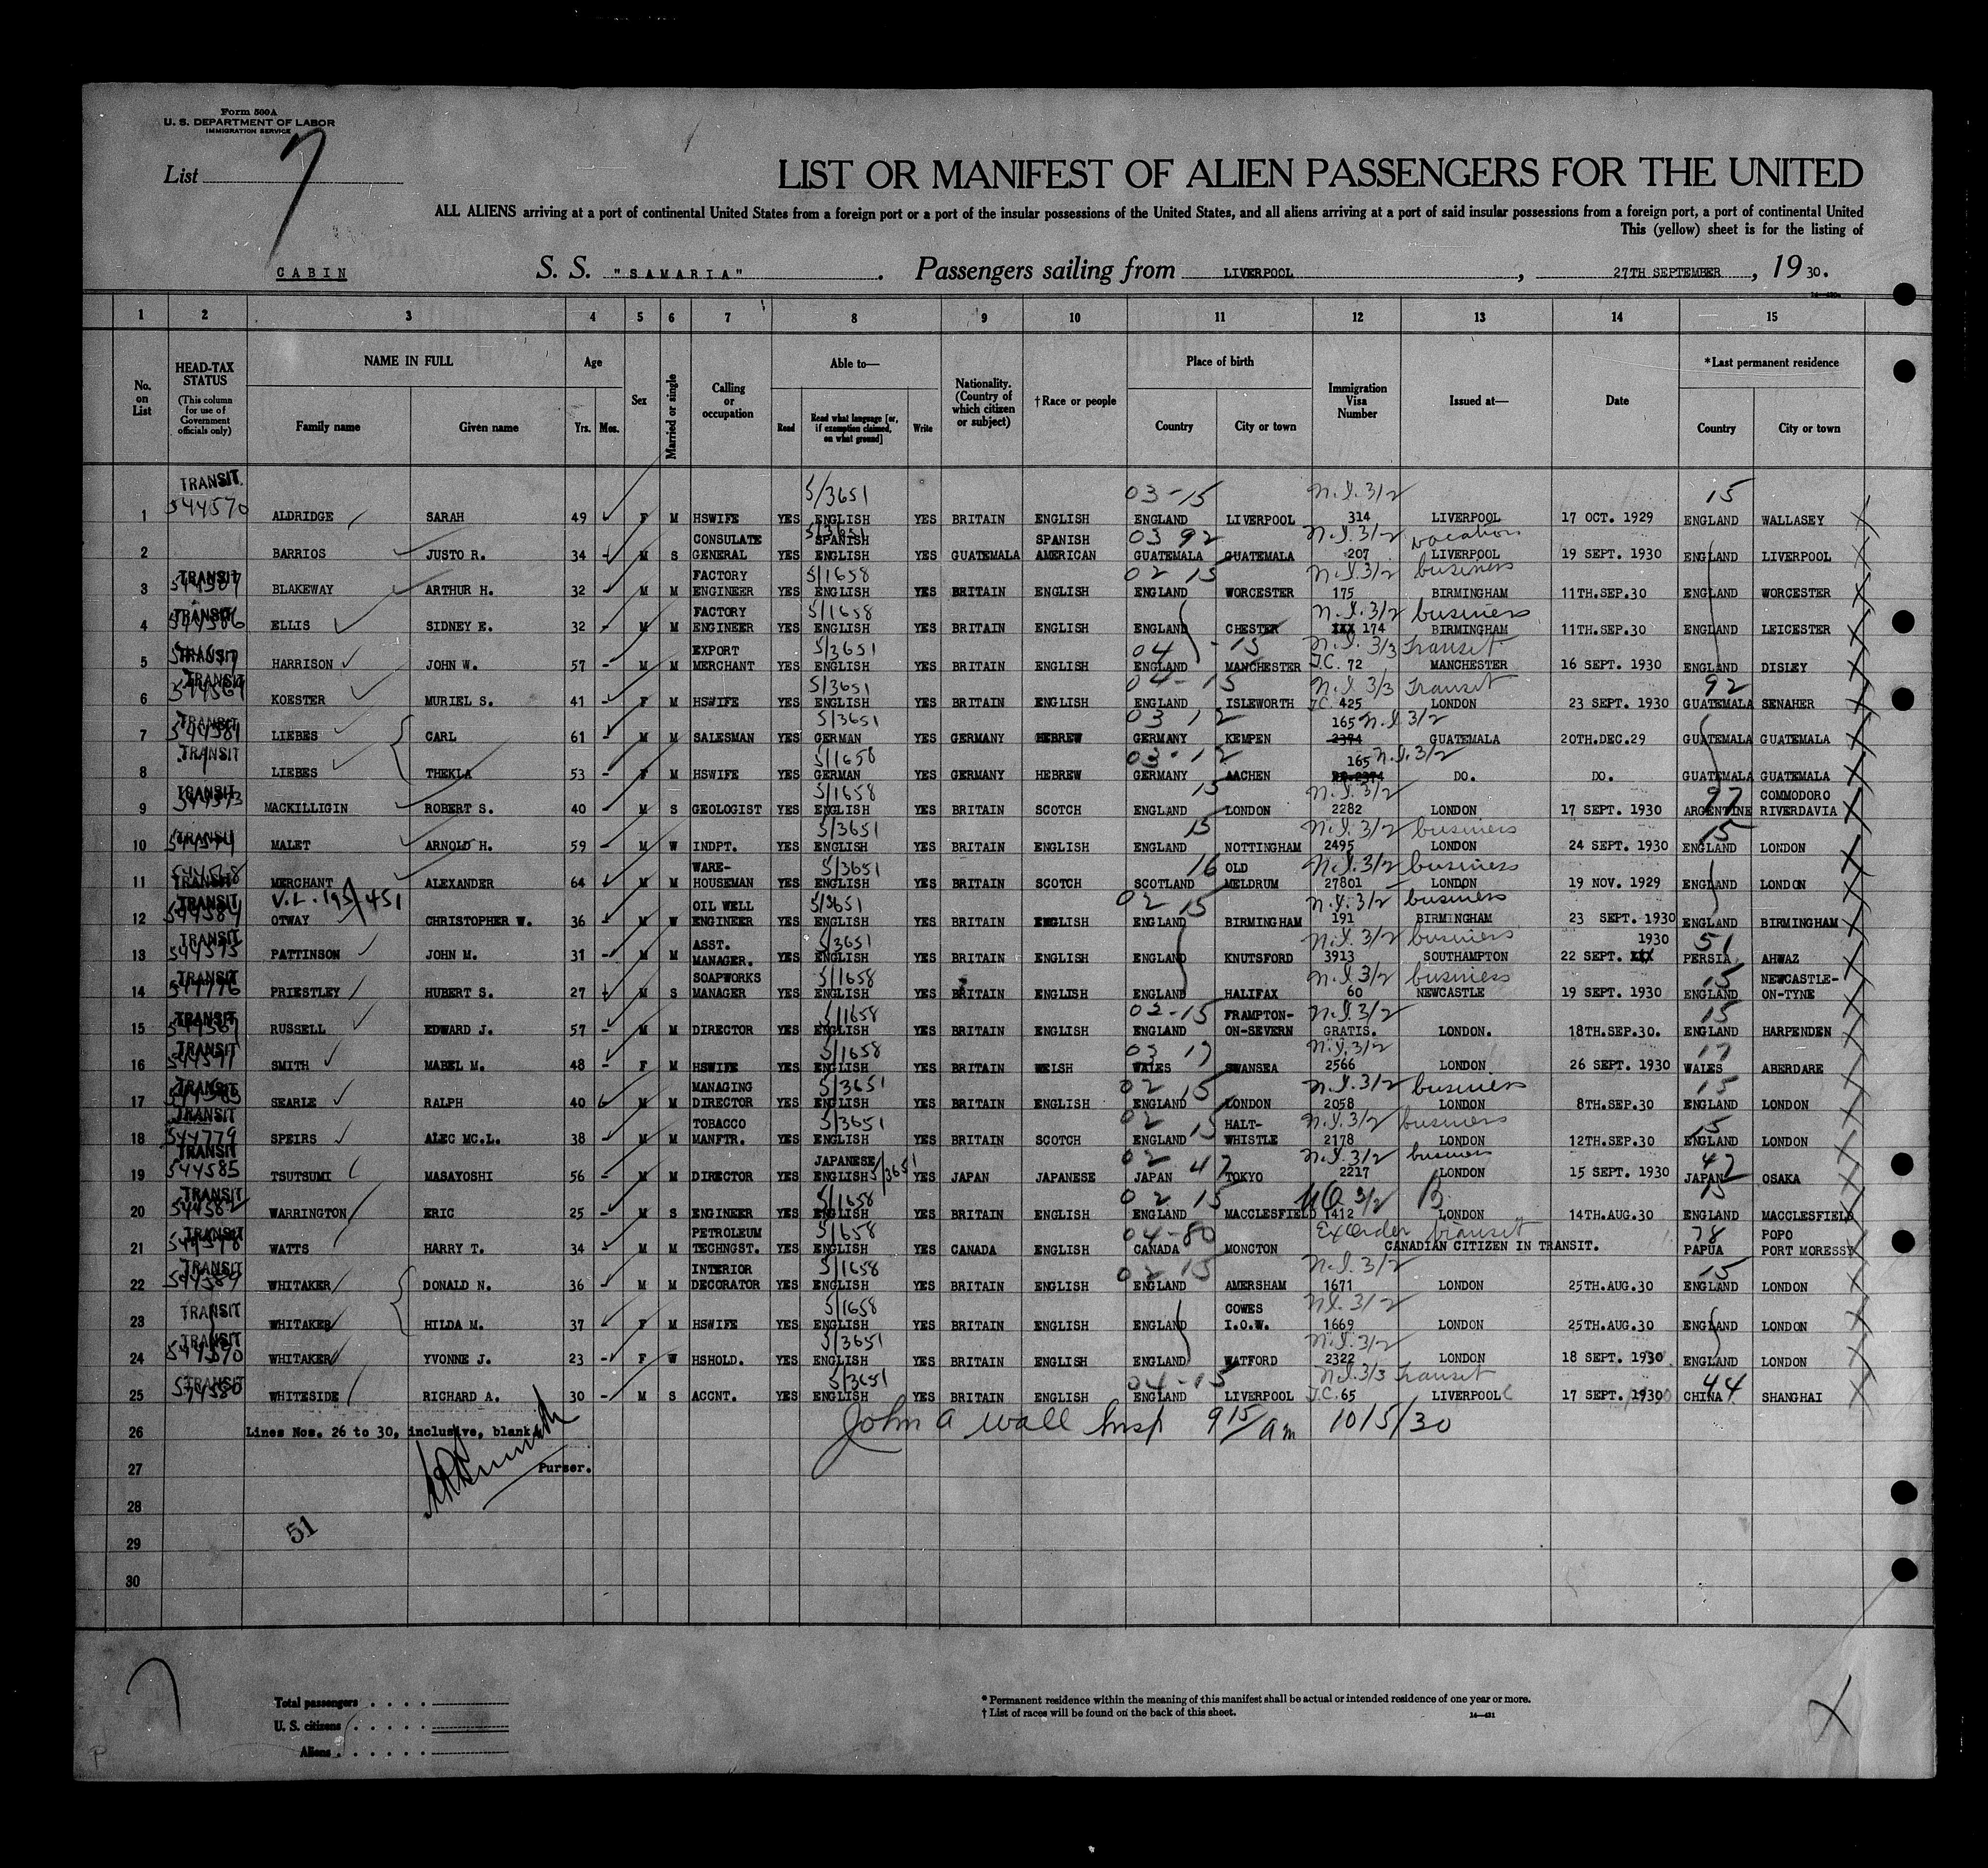 Form 500A
U. S. DEPARTMENT OF LABOR
IMMIGRATION SERVICE
List 7
LIST OR MANIFEST OF ALIEN PASSENGERS FOR THE UNITED
ALL ALIENS arriving at a port of continental United States from a foreign port or a port of the insular possessions of the United States, and all aliens arriving at a port of said insular possessions from a foreign port, a port of continental United
This (yellow) sheet is for the listing of
CABIN S. S. "SAMARIA". Passengers sailing from LIVERPOOL, 27TH SEPTEMBER, 1930.
1 2 3 4 5 6 7 8 9 10 11 12 13 14 15
No. on List
HEAD-TAX STATUS (This column for use of Government officials only)
NAME IN FULL Family name Given name
Age Yrs. Mos.
Sex
Married or single
Calling or occupation
Able to— Read Read what language [or, if exemption claimed, on what ground] Write
Nationality. (Country of which citizen or subject)
†Race or people
Place of birth Country City or town
Immigration Visa Number
Issued at—
Date
*Last permanent residence Country City or town
TRANSIT 5/3651 03-15 N.I. 3/2 15
1 544570 ALDRIDGE SARAH 49 F M HSWIFE YES ENGLISH YES BRITAIN ENGLISH ENGLAND LIVERPOOL 314 LIVERPOOL 17 OCT. 1929 ENGLAND WALLASEY
5/3651 03 92 N.I. 3/2 vacation
2 BARRIOS JUSTO R. 34 M S CONSULATE GENERAL YES SPANISH ENGLISH YES GUATEMALA SPANISH AMERICAN GUATEMALA GUATEMALA 207 LIVERPOOL 19 SEPT. 1930 ENGLAND LIVERPOOL
TRANSIT 5/1658 02 15 N.I. 3/2 business
3 BLAKEWAY ARTHUR H. 32 M M FACTORY ENGINEER YES ENGLISH YES BRITAIN ENGLISH ENGLAND WORCESTER 175 BIRMINGHAM 11TH.SEP.30 ENGLAND WORCESTER
TRANSIT 5/1658 N.I. 3/2 business
4 ELLIS SIDNEY E. 32 M M FACTORY ENGINEER YES ENGLISH YES BRITAIN ENGLISH ENGLAND CHESTER XXX 174 BIRMINGHAM 11TH.SEP.30 ENGLAND LEICESTER
TRANSIT 5/3651 04 - 15 N.I. 3/3 Transit
5 HARRISON JOHN W. 57 M M EXPORT MERCHANT YES ENGLISH YES BRITAIN ENGLISH ENGLAND MANCHESTER T.C. 72 MANCHESTER 16 SEPT. 1930 ENGLAND DISLEY
TRANSIT 5/3651 04-15 N.I. 3/3 Transit 92
6 KOESTER MURIEL S. 41 F M HSWIFE YES ENGLISH YES BRITAIN ENGLISH ENGLAND ISLEWORTH T.C. 425 LONDON 23 SEPT. 1930 GUATEMALA SENAHER
TRANSIT 5/3651 03 12 165 N.I. 3/2
7 LIEBES CARL 61 M M SALESMAN YES GERMAN YES GERMANY HEBREW GERMANY KEMPEN 2374 GUATEMALA 20TH.DEC.29 GUATEMALA GUATEMALA
TRANSIT 5/1658 03-12 165 N.I. 3/2
8 LIEBES THEKLA 53 F M HSWIFE YES GERMAN YES GERMANY HEBREW GERMANY AACHEN DO. DO. GUATEMALA GUATEMALA
TRANSIT 5/1658 15 N.I. 3/2 97
9 MACKILLIGIN ROBERT S. 40 M S GEOLOGIST YES ENGLISH YES BRITAIN SCOTCH ENGLAND LONDON 2282 LONDON 17 SEPT. 1930 ARGENTINE COMMODORO RIVERDAVIA
TRANSIT 5/3651 15 N.I. 3/2 business 15
10 MALET ARNOLD H. 59 M W INDPT. YES ENGLISH YES BRITAIN ENGLISH ENGLAND NOTTINGHAM 2495 LONDON 24 SEPT. 1930 ENGLAND LONDON
TRANSIT 5/3651 16 N.I. 3/2 business
11 MERCHANT ALEXANDER 64 M M WARE-HOUSEMAN YES ENGLISH YES BRITAIN SCOTCH SCOTLAND OLD MELDRUM 27801 LONDON 19 NOV. 1929 ENGLAND LONDON
TRANSIT V.L. 195/451 5/3651 02 15 N.I. 3/2 business
12 OTWAY CHRISTOPHER W. 36 M W OIL WELL ENGINEER YES ENGLISH YES BRITAIN ENGLISH ENGLAND BIRMINGHAM 191 BIRMINGHAM 23 SEPT. 1930 ENGLAND BIRMINGHAM
TRANSIT 5/3651 N.I. 3/2 business 51
13 544575 PATTINSON JOHN M. 31 M M ASST. MANAGER. YES ENGLISH YES BRITAIN ENGLISH ENGLAND KNUTSFORD 3913 SOUTHAMPTON 22 SEPT. XXX 1930 PERSIA AHWAZ
TRANSIT 5/1658 N.I. 3/2 business 15
14 PRIESTLEY HUBERT S. 27 M S SOAPWORKS MANAGER YES ENGLISH YES BRITAIN ENGLISH ENGLAND HALIFAX 60 NEWCASTLE 19 SEPT. 1930 ENGLAND NEWCASTLE-ON-TYNE
TRANSIT 5/1658 02-15 N.I. 3/2 15
15 RUSSELL EDWARD J. 57 M M DIRECTOR YES ENGLISH YES BRITAIN ENGLISH ENGLAND FRAMPTON-ON-SEVERN GRATIS. LONDON. 18TH.SEP.30. ENGLAND HARPENDEN
TRANSIT 5/1658 03 17 N.I. 3/2 17
16 SMITH MABEL M. 48 F M HSWIFE YES ENGLISH YES BRITAIN WELSH WALES SWANSEA 2566 LONDON 26 SEPT. 1930 WALES ABERDARE
TRANSIT 5/3651 02 15 N.I. 3/2 business 15
17 SEARLE RALPH 40 M M MANAGING DIRECTOR YES ENGLISH YES BRITAIN ENGLISH ENGLAND LONDON 2058 LONDON 8TH.SEP.30 ENGLAND LONDON
TRANSIT 5/3651 02 15 N.I. 3/2 business 15
18 544779 SPEIRS ALEC MC.L. 38 M M TOBACCO MANFTR. YES ENGLISH YES BRITAIN SCOTCH ENGLAND HALT-WHISTLE 2178 LONDON 12TH.SEP.30 ENGLAND LONDON
TRANSIT 5/3651 02 47 N.I. 3/2 business 42
19 544585 TSUTSUMI MASAYOSHI 56 M M DIRECTOR YES JAPANESE ENGLISH YES JAPAN JAPANESE JAPAN TOKYO 2217 LONDON 15 SEPT. 1930 JAPAN OSAKA
TRANSIT 5/1658 02 15 3/2 B 15
20 544582 WARRINGTON ERIC 25 M S ENGINEER YES ENGLISH YES BRITAIN ENGLISH ENGLAND MACCLESFIELD 1412 LONDON 14TH.AUG.30 ENGLAND MACCLESFIELD
TRANSIT 5/1658 04-80 Ex Order transit 78
21 WATTS HARRY T. 34 M M PETROLEUM TECHNGST. YES ENGLISH YES CANADA ENGLISH CANADA MONCTON CANADIAN CITIZEN IN TRANSIT. PAPUA POPO PORT MORESSY
TRANSIT 5/1658 02 15 N.I. 3/2 15
22 544589 WHITAKER DONALD N. 36 M M INTERIOR DECORATOR YES ENGLISH YES BRITAIN ENGLISH ENGLAND AMERSHAM 1671 LONDON 25TH.AUG.30 ENGLAND LONDON
TRANSIT 5/1658 N.I. 3/2
23 WHITAKER HILDA M. 37 F M HSWIFE YES ENGLISH YES BRITAIN ENGLISH ENGLAND COWES I.O.W. 1669 LONDON 25TH.AUG.30 ENGLAND LONDON
TRANSIT 5/3651 N.I. 3/2
24 WHITAKER YVONNE J. 23 F W HSHOLD. YES ENGLISH YES BRITAIN ENGLISH ENGLAND WATFORD 2322 LONDON 18 SEPT. 1930 ENGLAND LONDON
TRANSIT 5/3651 04-15 N.I. 3/3 Transit 44
25 WHITESIDE RICHARD A. 30 M S ACCNT. YES ENGLISH YES BRITAIN ENGLISH ENGLAND LIVERPOOL T.C. 65 LIVERPOOL 17 SEPT. 1930 CHINA SHANGHAI
26 Lines Nos. 26 to 30, inclusive, blank. John A Wall Insp 9 15/am 10/5/30
27 Purser.
28
51
29
30
7
Total passengers
U. S. citizens
Aliens
* Permanent residence within the meaning of this manifest shall be actual or intended residence of one year or more.
† List of races will be found on the back of this sheet. 14—431